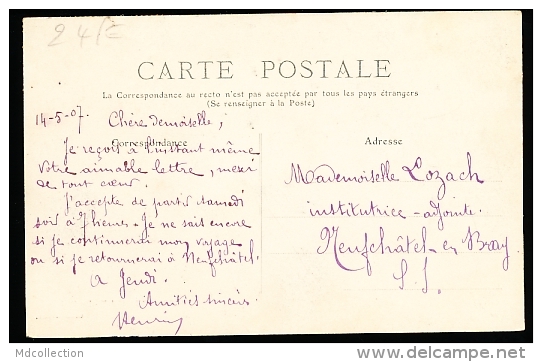 24 f
CARTE POSTALE
La Correspondance au recto n'est pas acceptée par tous les pays étrangers
(Se renseigner à la Poste)
14-5-07.
Chère demoiselle,
Correspondance
Je reçois à l'instant même
votre aimable lettre, merci
de tout cœur.
J'accepte de partir samedi
soir à 7 heures. Je ne sais encore
si je continuerai mon voyage
ou si je retournerai à Neufchâtel.
à Jeudi.
Amitiés sincères
Adresse
Mademoiselle Lozach
institutrice-adjointe.
Neufchâtel-en Bray
S. I.
Mdcollection
delcampe.net